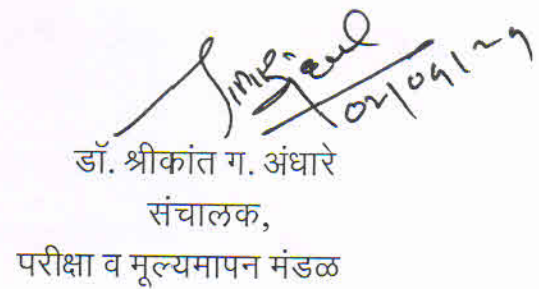 डॉ. श्रीकांत ग. अंधारे
संचालक,
परीक्षा व मूल्यमापन मंडळ